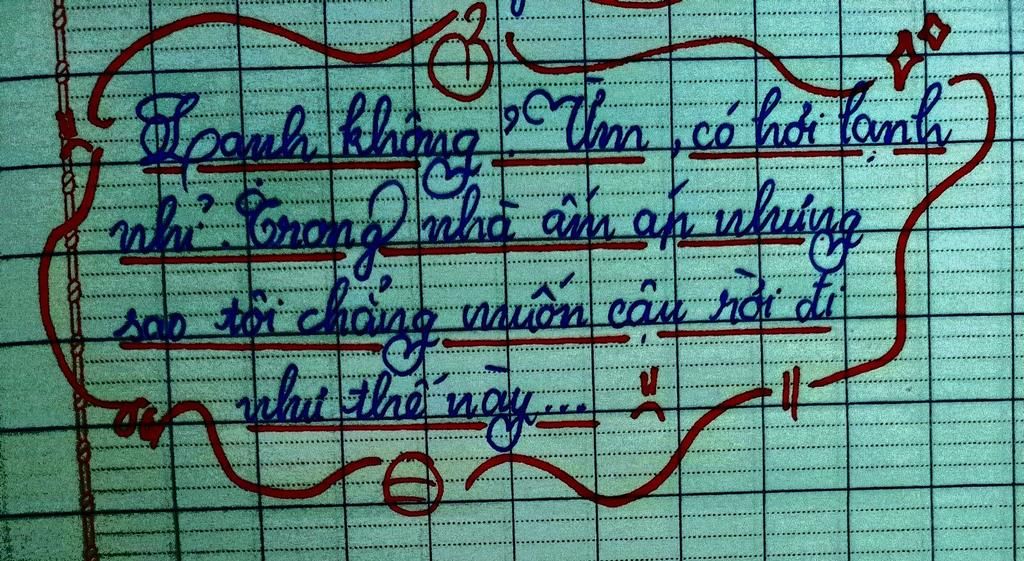 Lạnh không? Ừm, có hơi lạnh
nhỉ. Trong nhà ấm áp nhưng
sao tôi chẳng muốn cậu rời đi
như thế này...